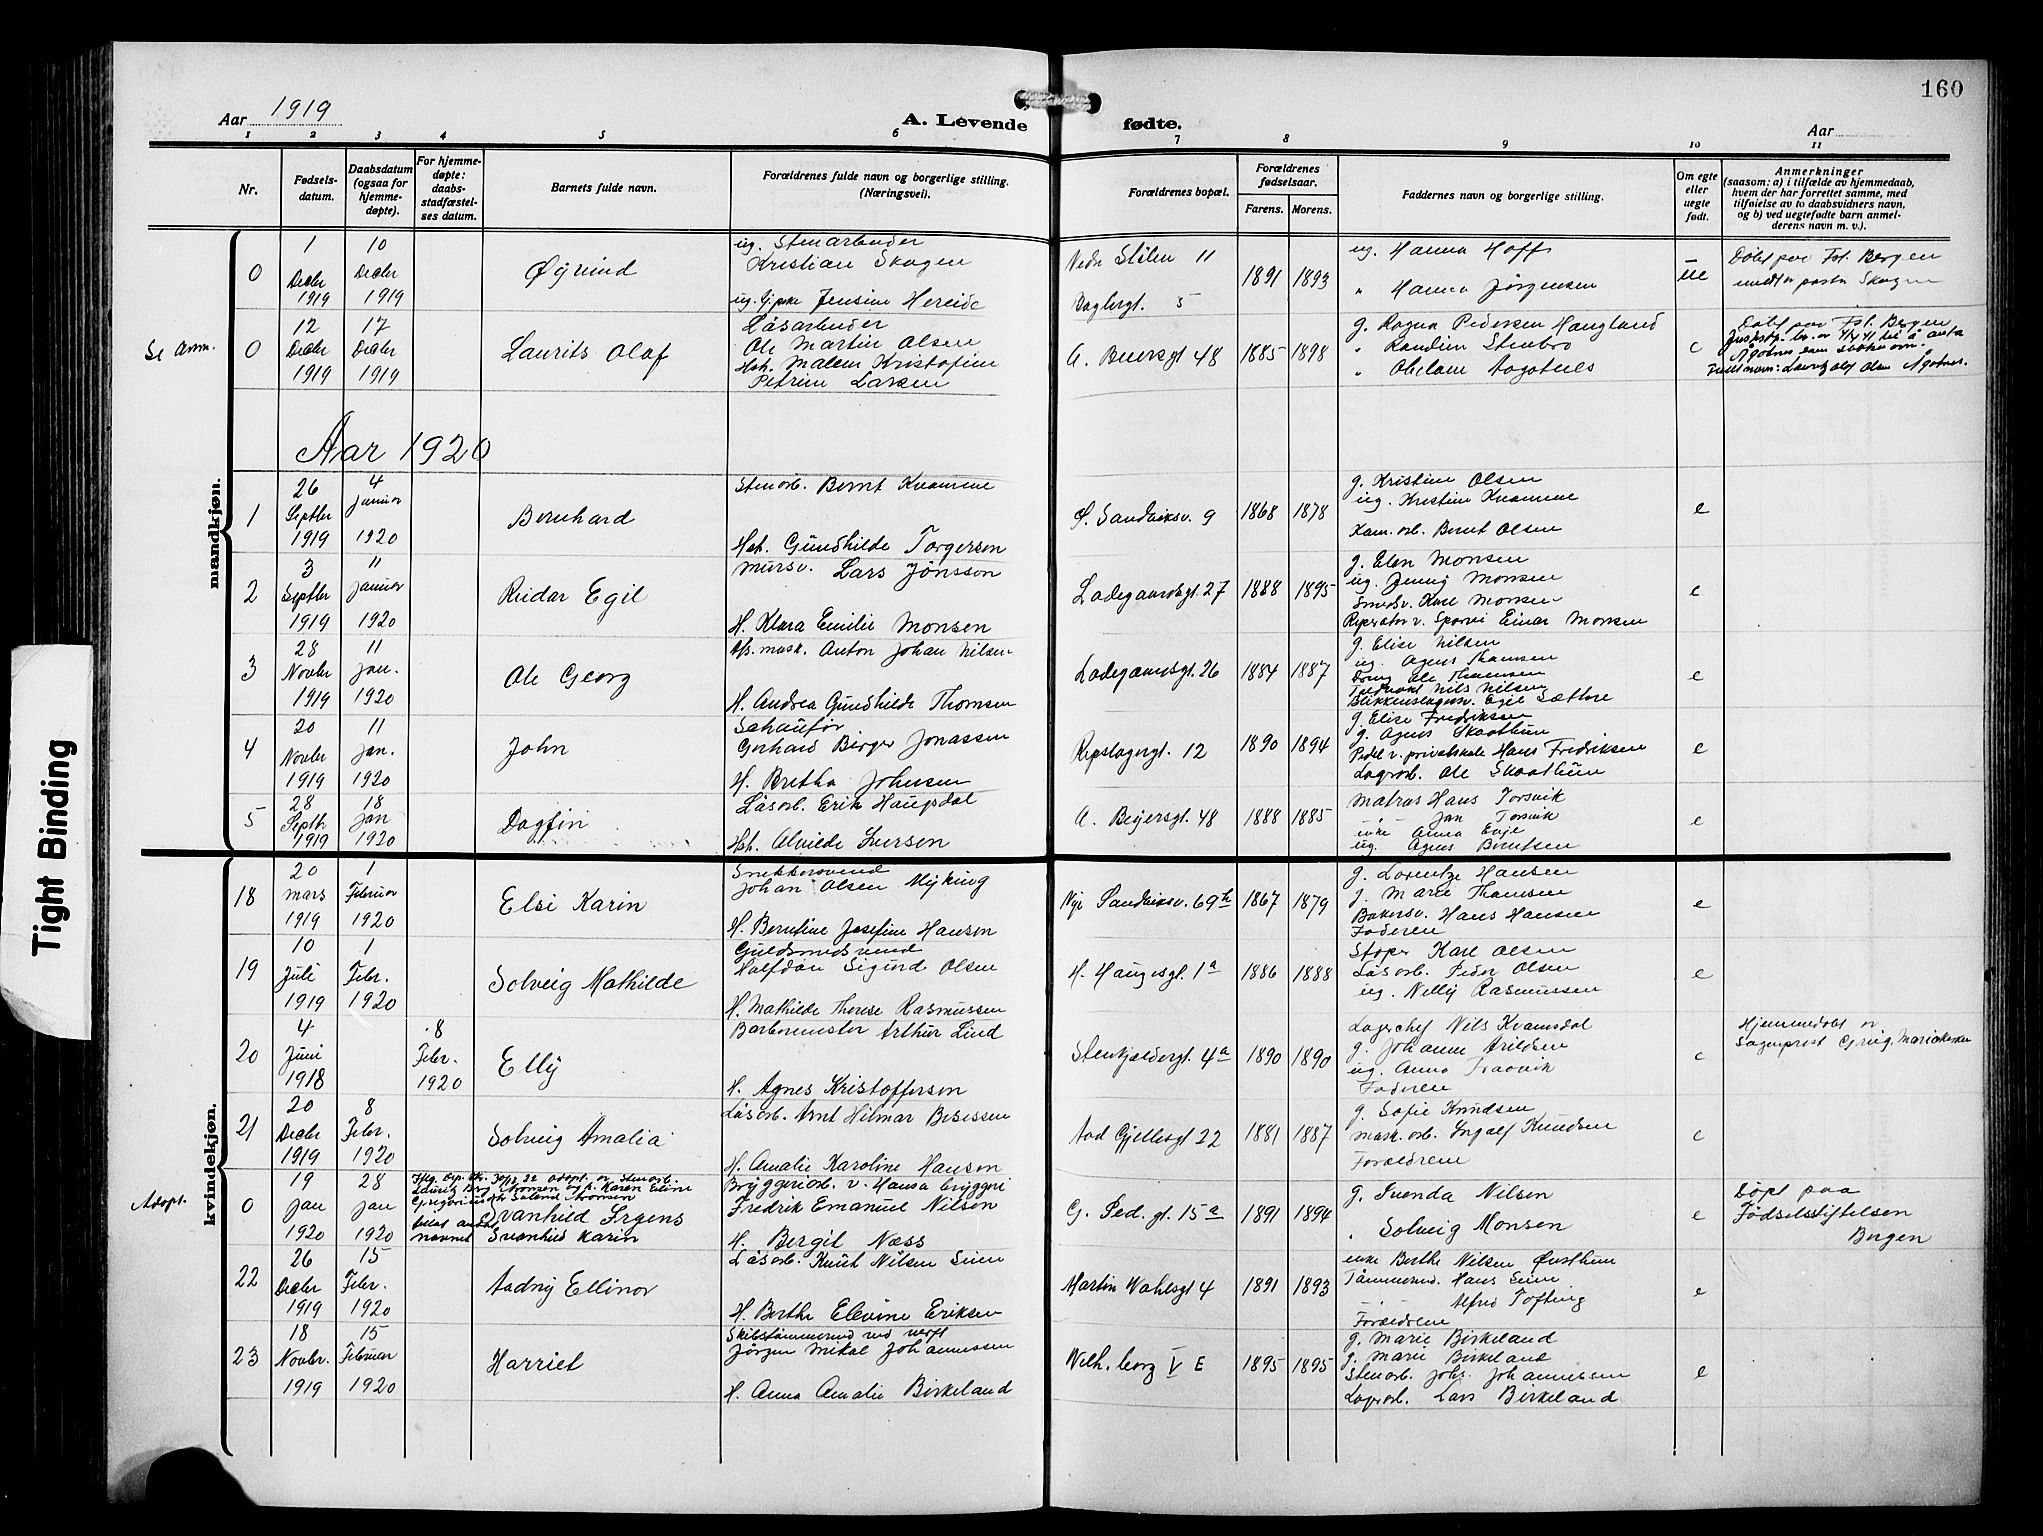 160
Aar 1919
A. Levende fødte.
Aar
1 2 3 4 5 6 7 8 9 10 11
Nr.
Fødsels-
datum.
Daabsdatum
(ogsaa for
hjemme-
døpte).
For hjemme-
døpte:
daabs-
stadfæstel-
ses datum.
Barnets fulde navn.
Forældrenes fulde navn og borgerlige stilling.
(Næringsvei).
Forældrenes bopæl.
Forældrenes
fødselsaar.
Farens. Morens.
Faddernes navn og borgerlige stilling.
Om egte
eller
uegte
født.
Anmerkninger
(saasom: a) i tilfælde av hjemmedaab,
hvem der har forrettet samme, med
tilføielse av to daabsvidners navn,
og b) ved uegtefødte barn anmel-
derens navn m. v.).
mandkjøn.
0
1 Decbr 1919
10 Decbr 1919
Øyvind
ug. Stenarbeider
Kristian Skagen
ug. Jensine Hereide
Nedr Stølen 11
5
1891 1893
ug. Hanna Hoff
" Hanna Jørgensen
ue
Døbt paa Fst. Bergen
Se Anm.
0
12 Decbr 1919
17 Decbr 1919
Laurits Olaf
Løsarbeider
Ole Martin Olsen
Hst. Malene Kristofine
Petrine Larsen
A. Beiersgt 48
1885 1898
g. Ragna Pedersen Haugland
" Stenbro
"
e
Døbt paa Fst. Bergen
Aar 1920
1
26 Septbr 1919
4 Januar 1920
Bernhard
Stenarb. Bernt Kvamme
Hst. Gundhilde Torgersen
S. Sandviksv. 9
1868 1878
g. Kristine Olsen
ug. Kristine Kvamme
Kam. arb. Bernt Olsen
e
2
3 Septbr 1919
11 Januar 1920
Reidar Egil
Mursv. Lars Jönsson
H. Klara Emilie Monsen
Ladegaardsgt. 27
1888 1895
g. Elen Monsen
ug. Jenny Monsen
Smedsv. Karl Monsen
Reparatør v. Sporvei Einar Monsen
e
3
28 Novbr 1919
11 Jan. 1920
Ole Georg
Anton Johan Nilsen
H. Andrea Gundhilde Thomsen
Ladegaardsgt. 26
1884 1887
g. Elise Nilsen
ug. Agnes Thomsen
Ole Thomsen
Nils Nilsen
Blikkenslagersv. Egil Sættere
e
4
20 Novbr 1919
11 Jan. 1920
John
Schauffør
Gerhard Birger Jonassen
H. Bertha Johnsen
Repslagergt. 12
1890 1894
g. Elise Fredriksen
g. Agnes Skaathun
Pedel v. privatskole Hans Fredriksen
Lagerarb. Ole Skaathun
e
5
28 Septbr 1919
18 Jan 1920
Dagfin
Løsarb. Erik Haugsdal
Hst. Alvilde Iversen
A. Beyersgt. 48
1888 1885
Matros Hans Torsvik
— " — Jan Torsvik
enke Anna Evje
ug. Agnes Berntsen
e
kvindekjøn.
18
20 mars 1919
1 Februar 1920
Elsi Karin
Snekkersvend
Johan Olsen Myking
H. Berntine Josefine Hansen
Nye Sandviksv. 69 b
1867 1879
g. Lorentze Hansen
g. Marie Thomsen
Bakersv. Hans Hansen
Faderen
e
19
10 Juli 1919
1 Febr. 1920
Solveig Mathilde
Guldsmedsvend
Halfdan Sigurd Olsen
H. Mathilde Therese Rasmussen
H. Haugesgt. 1a
1886 1888
Støper Karl Olsen
Løsarb. Peder Olsen
ug. Nelly Rasmussen
e
20
4 Juni 1918
8 Febr. 1920
Elly
Barbermester Arthur Lind
H. Agnes Kristoffersen
Stenkjeldergt. 4a
1890 1890
Lagerchef Nils Kvamsdal
g. Johanne Arildsen
ug. Anna Traavik
Faderen
e
Hjemmedøbt av
Sogneprest Grieg, Mariakirken
21
20 Decbr 1919
8 Febr. 1920
Solveig Amalia
Løsarb. Arnt Hilmar Besessen
H. Amalie Karoline Hansen
Aad Gjellesgt 22
1881 1887
g. Sofie Knudsen
Mask. arb. Ingolf Knudsen
Forældrene
e
Adopt.
0
19 Jan 1920
28 Jan 1920
Svanhild Irgens
Svanhild Karin
Bryggeriarb. v. Hansa bryggeri
Fredrik Emanuel Nilsen
H. Bergit Næss
G. Ped. gt. 15a
1891 1894
g. Svenda Nilsen
" Solveig Monsen
e
Døpt paa
Fødselsstiftelsen
Bergen
22
26 Decbr 1919
15 Febr. 1920
Aadny Ellinor
Løsarb. Knut Nilsen Seim
H. Berthe Elevine Eriksen
Martin Vahlsgt 4
1891 1893
enke Berthe Nilsen Øvsthun
Tømmermd. Hans Seim
— " — Alfred Tofting
Forældrene
e
23
18 Novbr. 1919
15 Februar 1920
Harriet
Skibstømmermd ved verft
Jørgen Mikal Johannessen
H. Anna Amalie Birkeland
Wilh. borg V E
1895 1895
g. Marie Birkeland
g. Marie Birkeland
Stenarb. Johs. Johannessen
Lagerarb. Lars Birkeland
e
Tight Binding